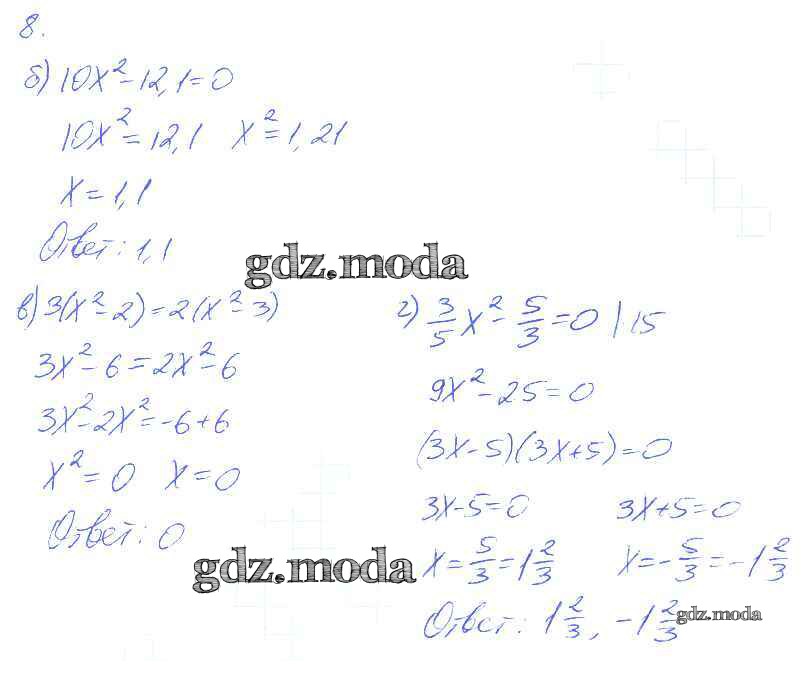 8.
б) 10x² - 12,1 = 0
10x² = 12,1 x² = 1,21
x = 1,1
Ответ: 1,1
gdz.moda
в) 3(x² - 2) = 2(x² - 3)
3x² - 6 = 2x² - 6
3x² - 2x² = -6 + 6
x² = 0 x = 0
Ответ: 0
gdz.moda
г) 3/5 x² - 5/3 = 0 | 15
9x² - 25 = 0
(3x - 5)(3x + 5) = 0
3x - 5 = 0 3x + 5 = 0
x = 5/3 = 1 2/3 x = -5/3 = -1 2/3
Ответ: 1 2/3, -1 2/3
gdz.moda